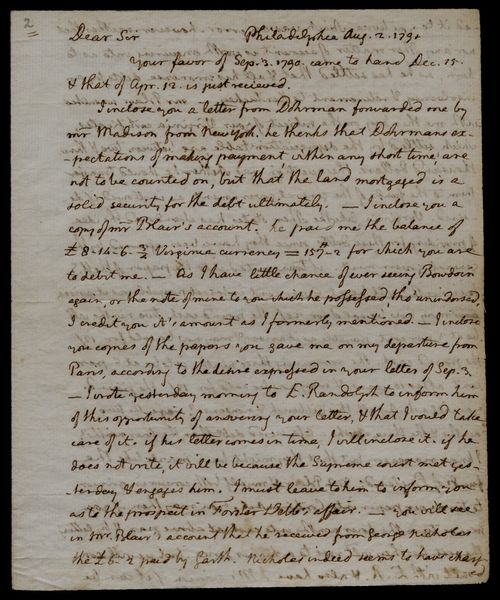 2
Dear Sir Philadelphia Aug. 2. 1791
Your favor of Sep. 3. 1790. came to hand Dec. 15.
& that of Apr. 12. is just recieved.
I inclose you a letter from Dohrman forwarded one by
mr Madison from New York. he thenks that Dohrmans ex-
-pectations of making paiment, within any short time, are
not to be counted on, but that the land mortgaged is a
solid security for the debt ultimately. — I inclose you a
copy of mr Blair's account. he paid me the balance of
£8-14-6 3/4 Virginia currency = 15 -2 for which you are
to debit me. — As I have little chance of ever seeing Bowdoin
again, or the note of mine to you which he possessed tho' unindorsed,
I credit you it's amount as I formerly mentioned. — I inclose
you copies of the papers you gave me on my departure from
Paris, according to the desire expressed in your letter of Sep. 3.
— I wrote yesterday morning to E. Randolph to inform him
of this opportunity of answering your letter, & that I would take
care of it. if his letter comes in time, I will inclose it. if he
does not write, it will be because the Supreme court met yes-
-terday & engages him. I must leave him to inform you
as to the prospect in Forster Webb's affair. — you will see
in mr. Blair's account that he received from George Nicholas
the £6-2 paid by Garth. Nicholas indeed seems to have